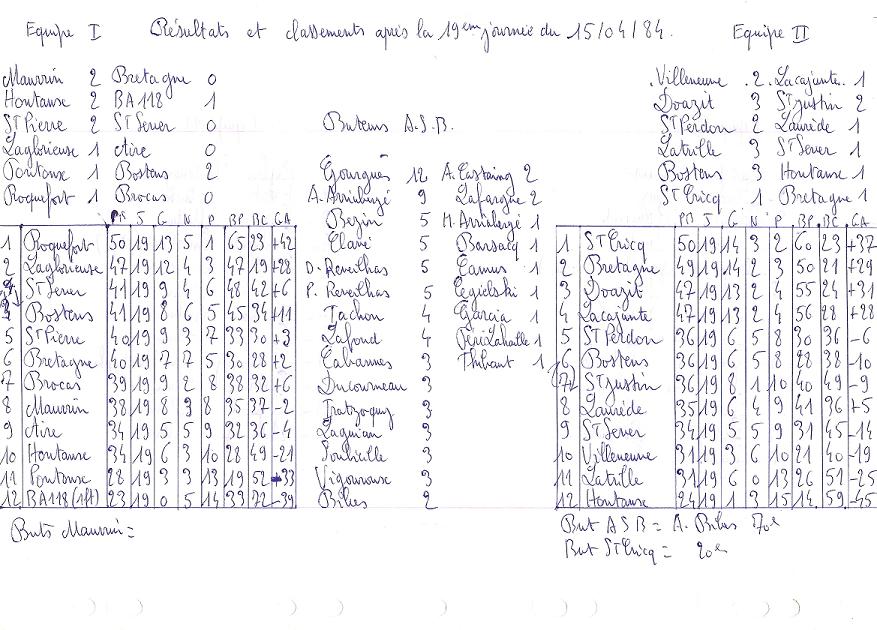 Equipe I Résultats et classements après la 19em journée du 15/04/84. Equipe II
Maurrin 2 Bretagne 0
Hontanx 2 BA118 1
St Pierre 2 St Sever 0
Laglorieuse 1 Aire 0
Pontonx 1 Bostens 2
Roquefort 1 Brocas 0
Villeneuve 2 Lacajunte 1
Doazit 3 St Justin 2
St Perdon 2 Laurède 1
Latrille 3 St Sever 1
Bostens 3 Hontanx 1
St Cricq 1 Bretagne 1
Pts J G N P BP BC GA
1 Roquefort 50 19 13 5 1 65 23 +42
2 Laglorieuse 47 19 12 4 3 47 19 +28
St Sever 41 19 9 4 6 48 42 +6
Bostens 41 19 8 6 5 45 34 +11
5 St Pierre 40 19 9 3 7 33 30 +3
6 Bretagne 40 19 7 7 5 30 28 +2
7 Brocas 39 19 9 2 8 38 32 +6
8 Maurrin 38 19 8 3 8 35 37 -2
9 Aire 34 19 5 5 9 32 36 -4
10 Hontanx 34 19 6 3 10 28 49 -21
11 Pontonx 28 19 3 3 13 19 52 -33
12 BA118 (1ft) 23 19 0 5 14 33 72 -39
Buts Maurrin =
Buteurs A.S.B.
Gourgues 12
A. Arriubergé 9
Bezin 5
Clavé 5
D. Reveilhas 5
P. Reveilhas 5
Tachon 4
Lafond 4
Cabannes 3
Ducourneau 3
Iratzoquy 3
Laguian 3
3
Vigouroux 3
Biles 2
A. Castaing 2
Lafargue 2
M. Arriubergé 1
Barsacq 1
Camus 1
Cegielski 1
Garcia 1
1
Thibaut 1
Pts J G N P BP BC GA
1 St Cricq 50 19 14 3 2 60 23 +37
2 Bretagne 49 19 14 2 3 50 21 +29
3 Doazit 47 19 13 2 4 55 24 +31
4 Lacajunte 47 19 13 2 4 56 28 +28
5 St Perdon 36 19 6 5 8 30 36 -6
6 Bostens 36 19 6 5 8 28 38 -10
7 St Justin 36 19 8 1 10 40 49 -9
8 Laurède 35 19 6 4 9 41 36 +5
9 St Sever 34 19 5 5 9 31 45 -14
10 Villeneuve 31 19 3 6 10 21 40 -19
11 Latrille 31 19 6 0 13 26 51 -25
12 Hontanx 24 19 1 3 15 14 59 -45
But ASB = A. Biles 70e
But St Cricq = 20e